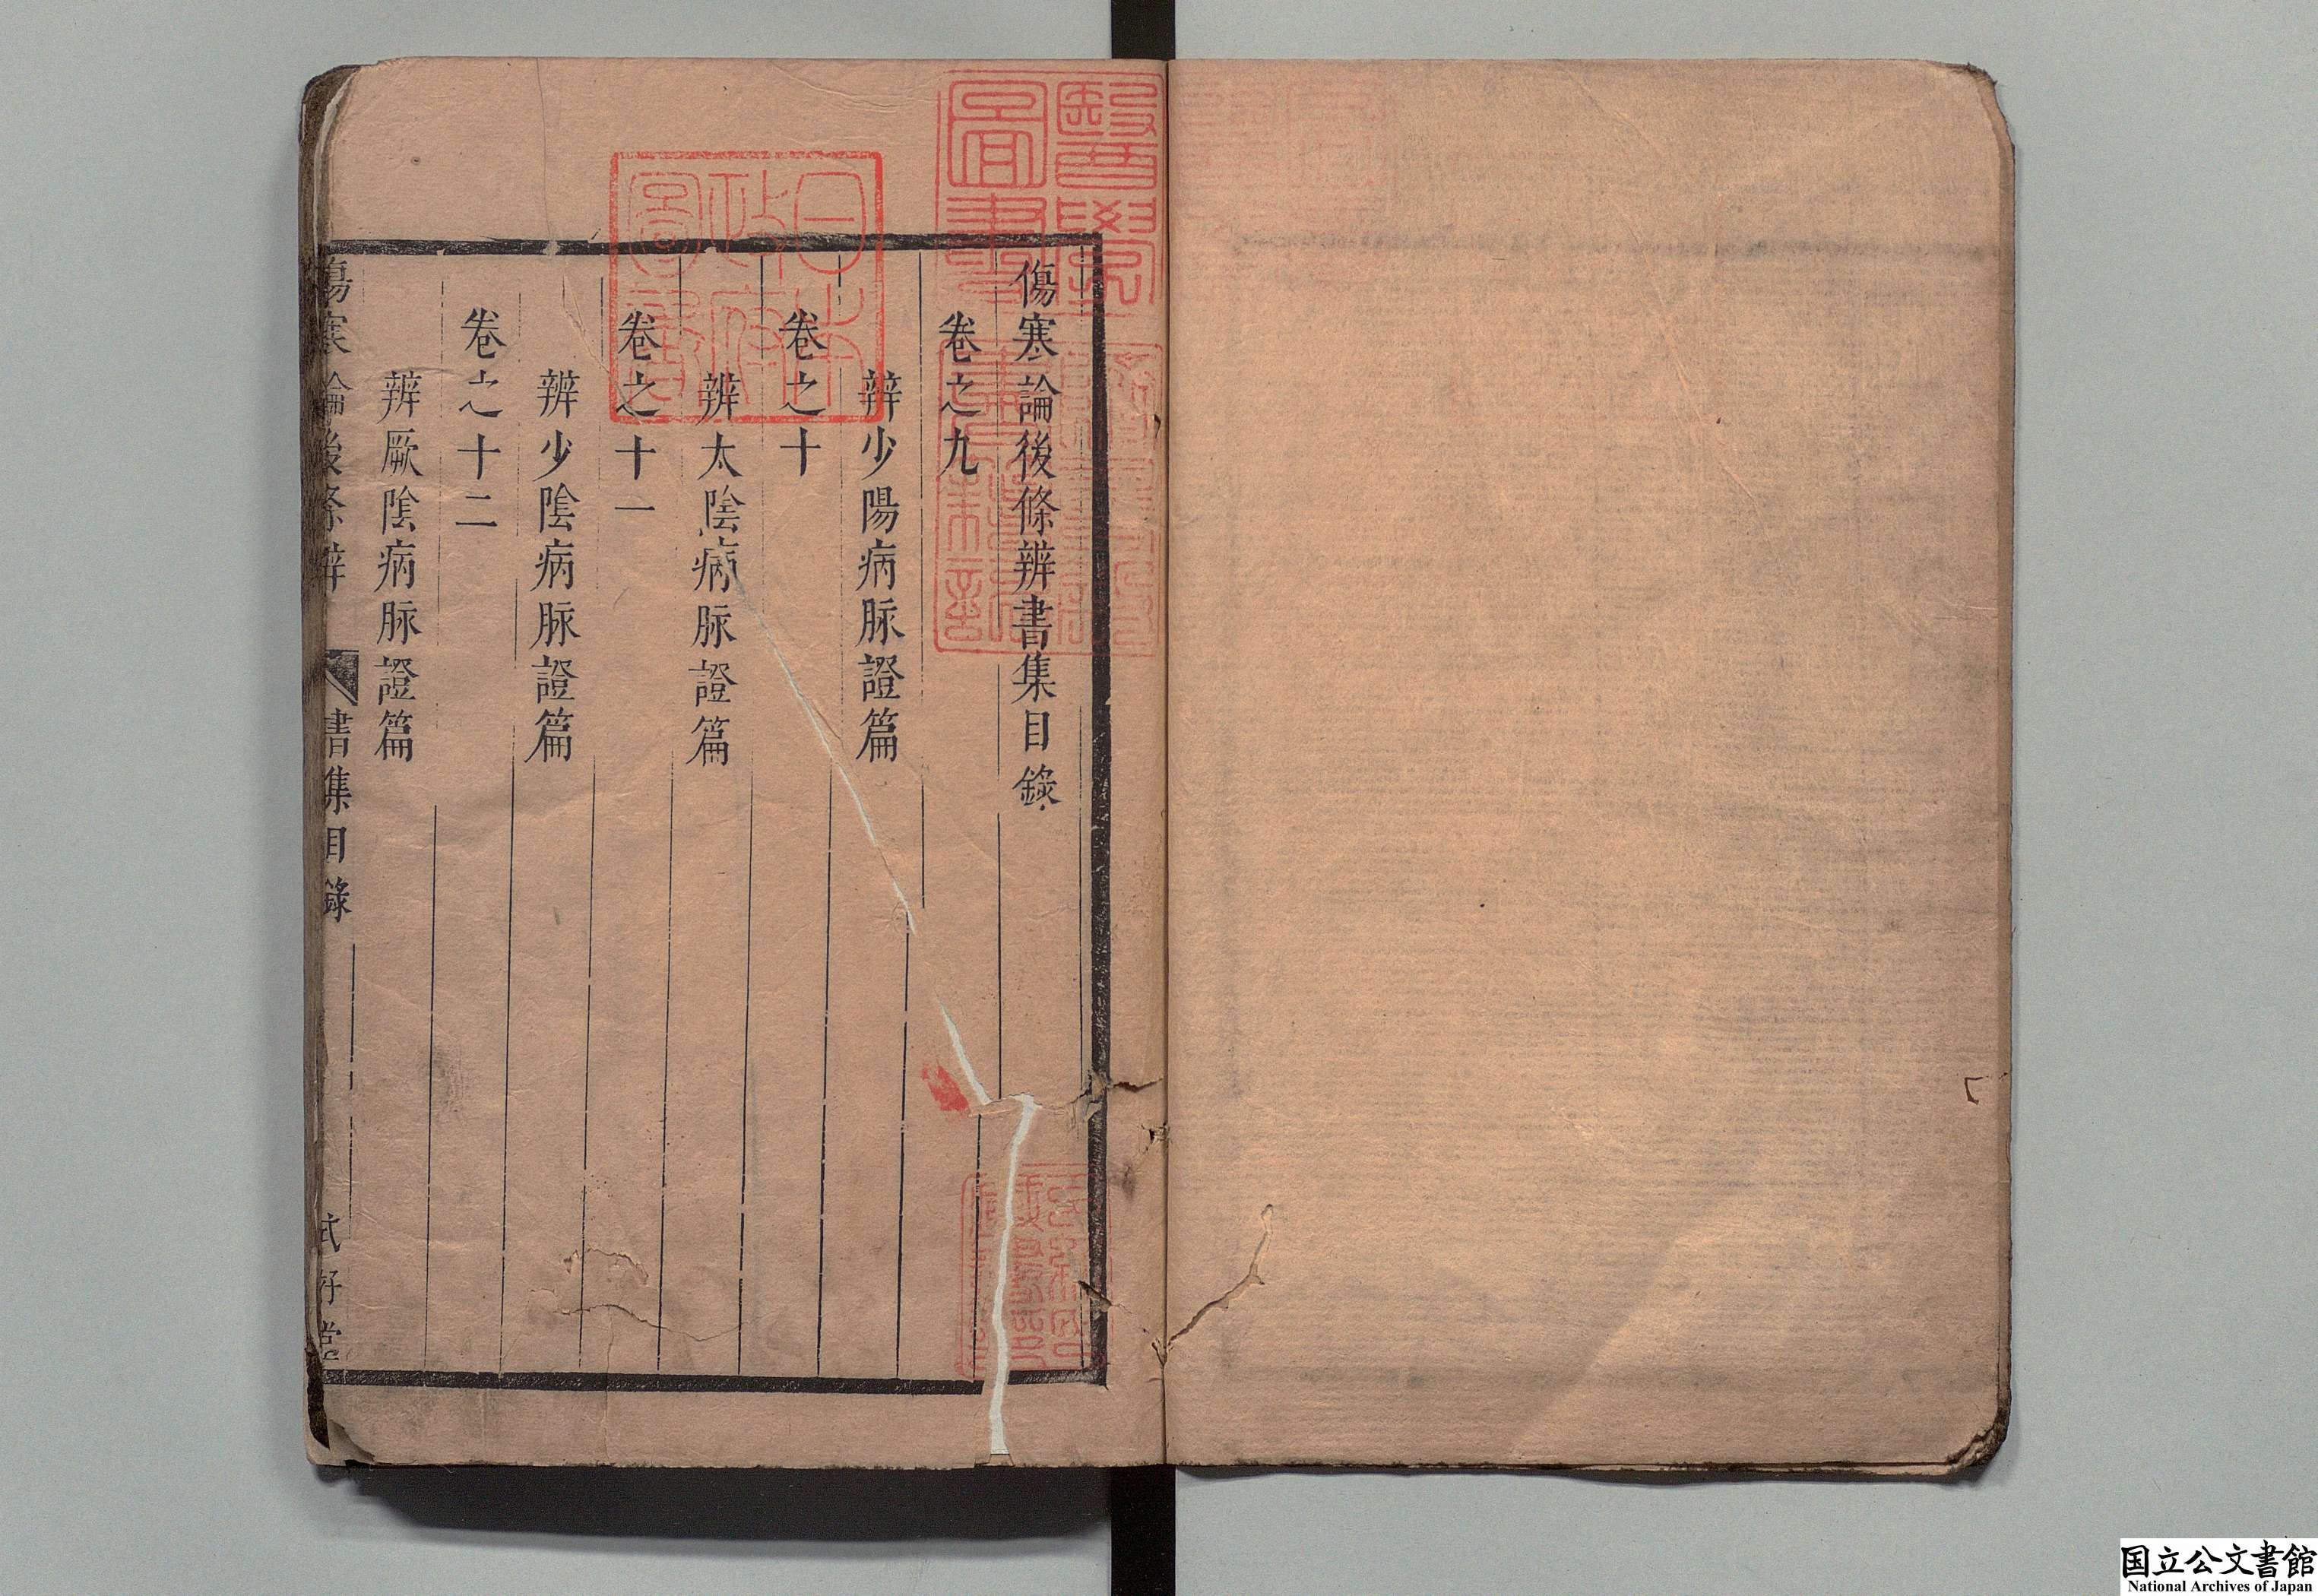 傷寒論後條辨書集目錄
卷之九
辨少陽病脉證篇
卷之十
辨太陰病脉證篇
卷之十一
辨少陰病脉證篇
卷之十二
辨厥陰病脉證篇
傷寒論後條辨 書集目錄 式好堂
醫學圖書
日本政府圖書
国立公文書館
National Archives of Japan